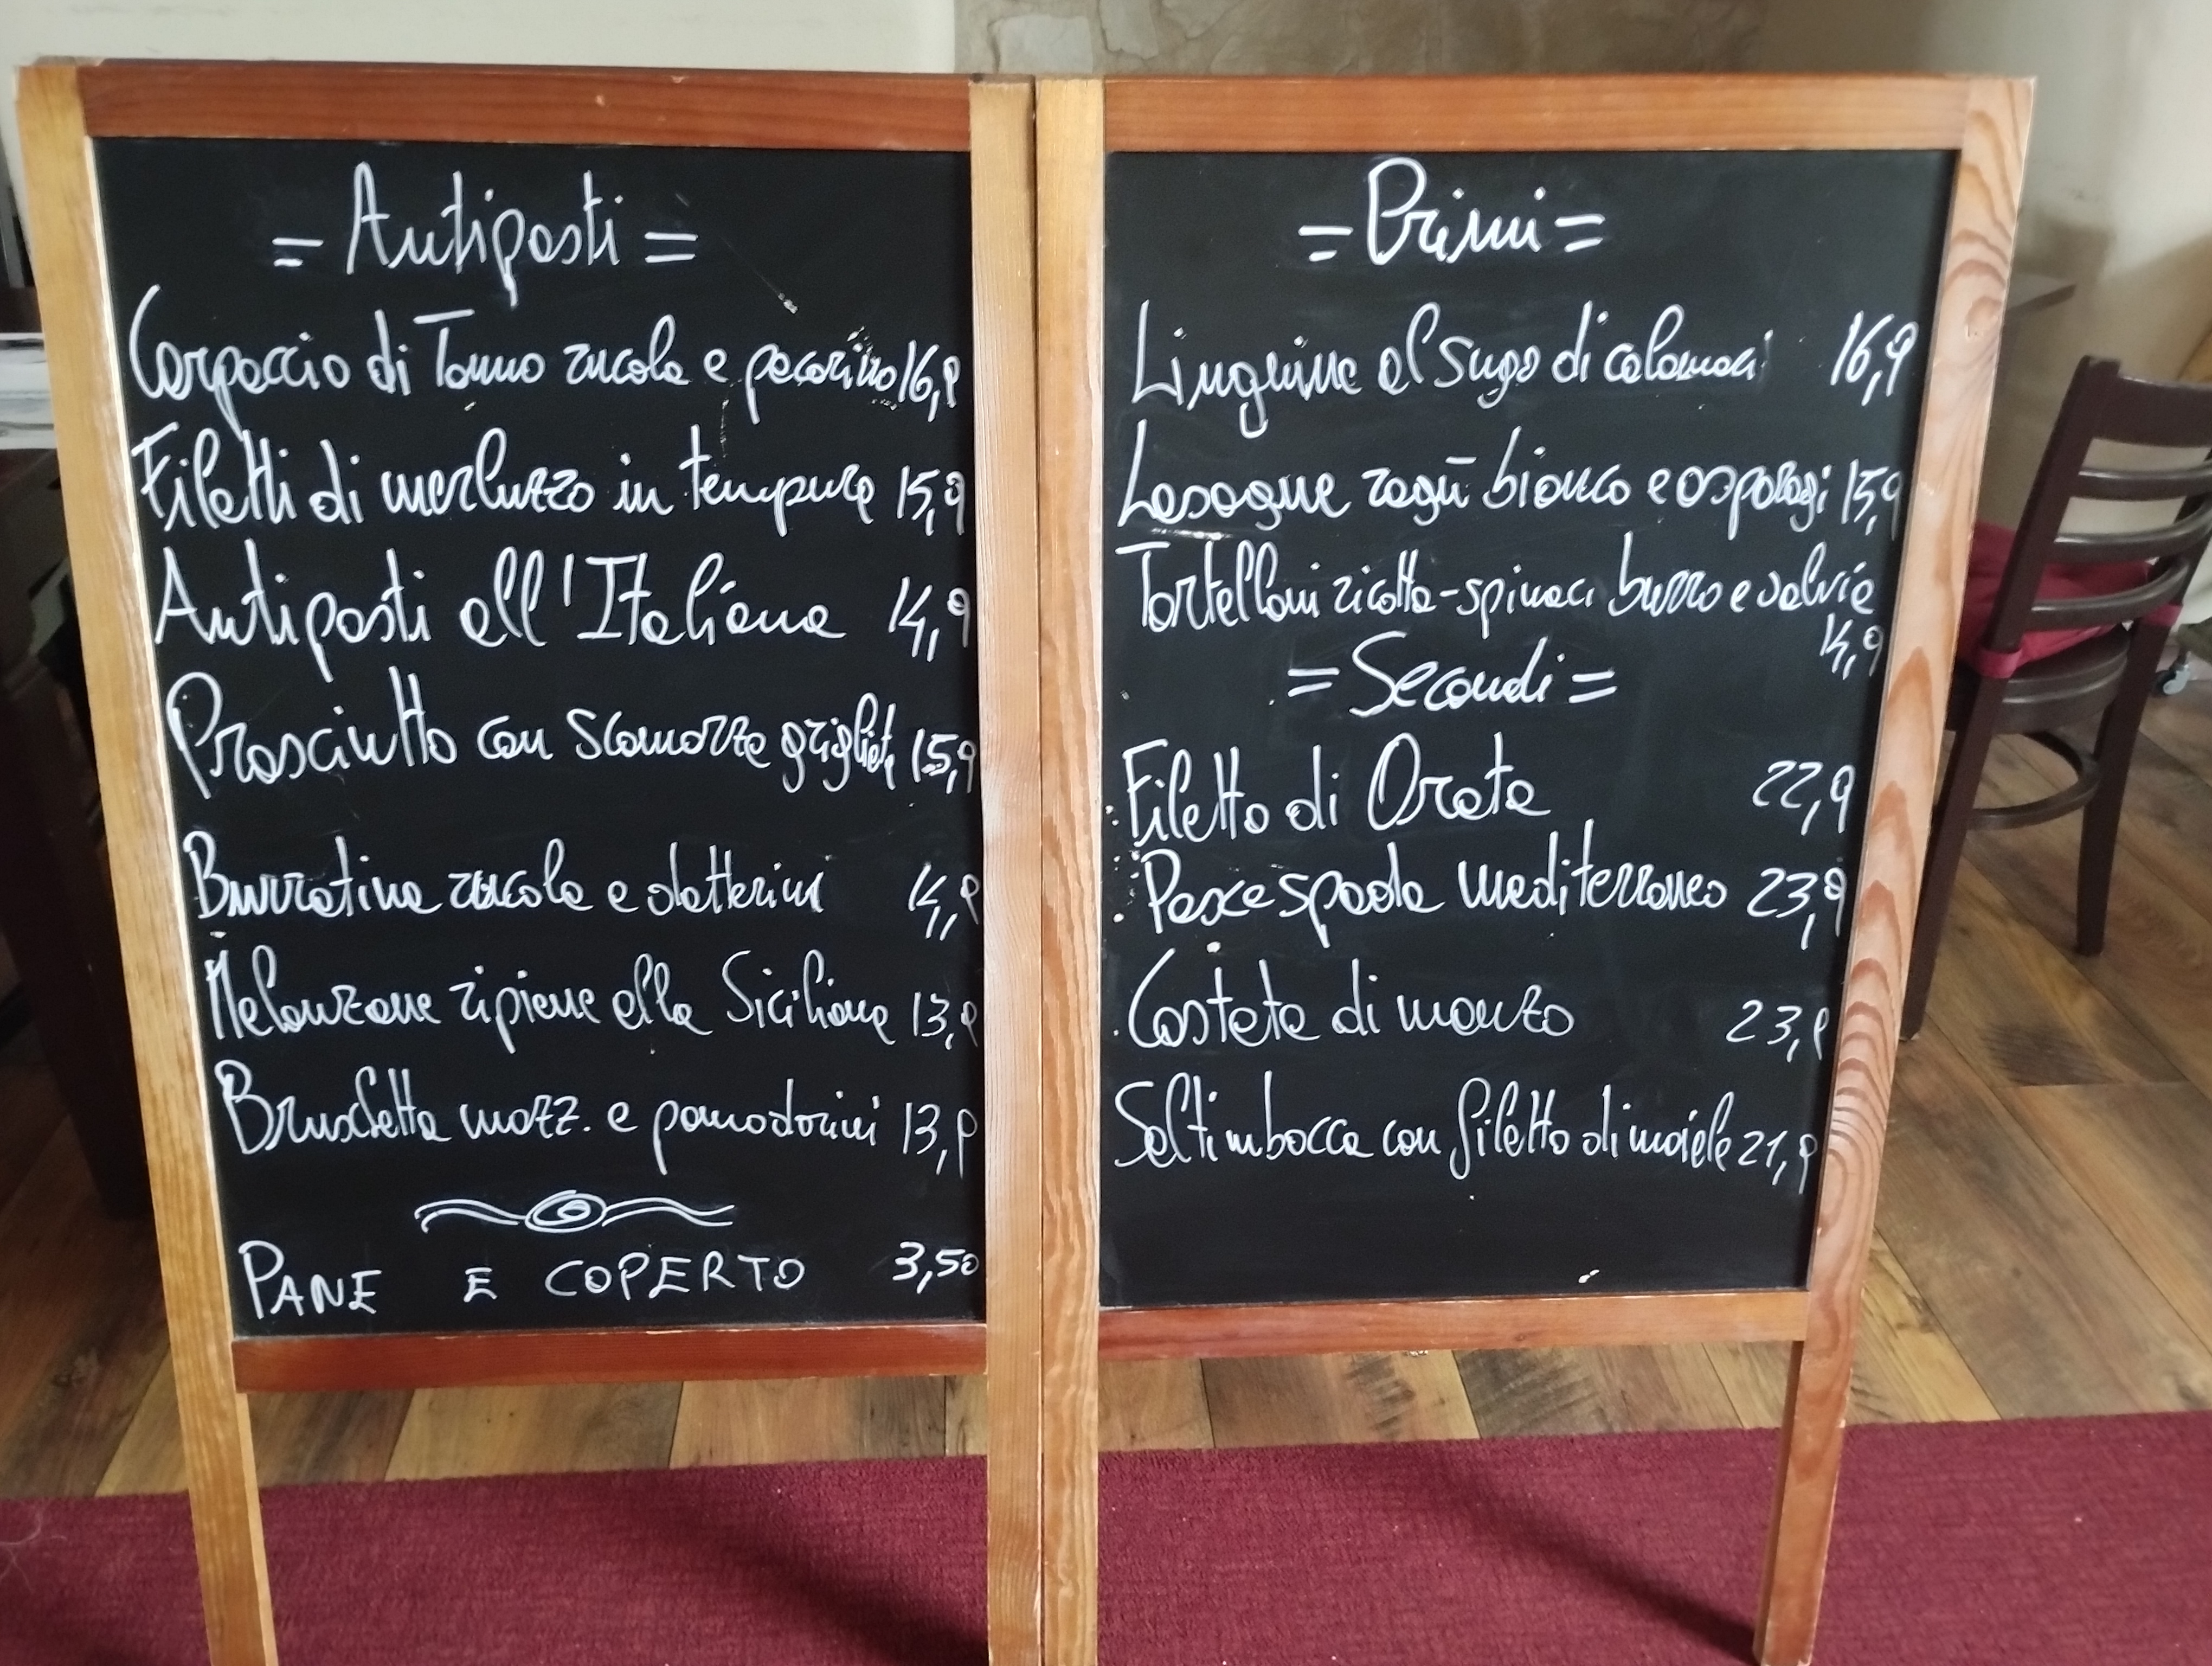 = Antipasti =
Carpaccio di Tonno rucola e pecorino 16,9
Filetti di merluzzo in tempura 15,9
Antipasti all'Italiana 14,9
Prosciutto con scamorza grigliata 15,9
Burratina rucola e datterini 14,9
Melanzane ripiene alla Siciliana 13,9
Bruschetta mozz. e pomodorini 13,9
PANE E COPERTO 3,50
= Primi =
Linguine al sugo di calamari 16,9
Lasagne ragù bianco e asparagi 15,9
Tortelloni ricotta-spinaci burro e salvia
14,9
= Secondi =
Filetto di Orata 22,9
Pesce spada mediterraneo 23,9
Costata di manzo 23,9
Saltimbocca con filetto di maiale 21,9